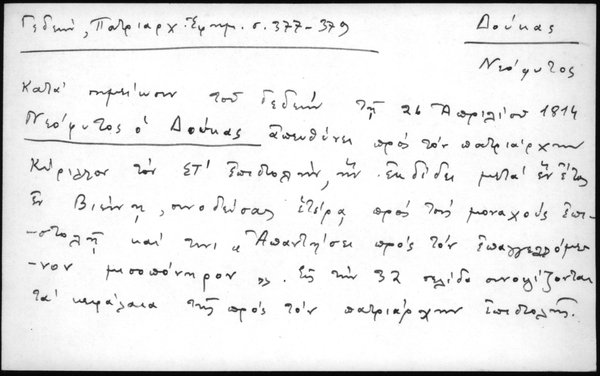 Γεδεών, Πατριαρχ. Ἐφημ. σ. 377-379
Δούκας
Νεόφυτος
Κατά σημείωσιν τοῦ Γεδεών τῇ 26 Ἀπριλίου 1814
Νεόφυτος ὁ Δούκας ἀπευθύνει πρός τόν πατριάρχην
Κύριλλον τόν ΣΤ' ἐπιστολήν, ἥν ἐκδίδει μετά ἕν ἔτος
ἐν Βιέννῃ, συνοδεύσας ἑτέρᾳ πρός τούς μοναχούς ἐπι-
-στολῇ καί τινι "Ἀπαντήσει πρός τόν ἐπαγγελλόμε-
-νον μισοπόνηρον". Εἰς τήν 32 σελίδα συνοψίζονται
τά κεφάλαια τῆς πρός τόν πατριάρχην ἐπιστολῆς.